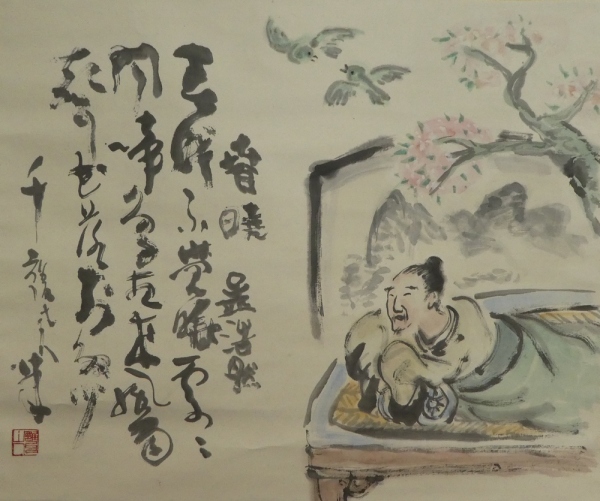 春暁 孟浩然
春眠不覚暁處〻
聞啼鳥夜来風雨
声花落知多少